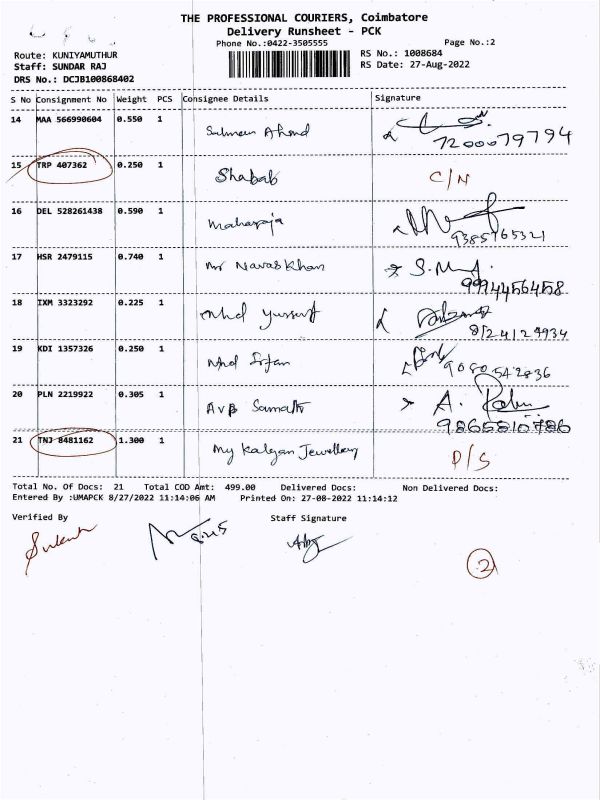 THE PROFESSIONAL COURIERS, Coimbatore
Delivery Runsheet - PCK
Phone No.:0422-3505555 Page No.:2
Route: KUNIYAMUTHUR RS No.: 1008684
Staff: SUNDAR RAJ RS Date: 27-Aug-2022
DRS No.: DCJB100868402
S No Consignment No Weight PCS Consignee Details Signature
14 MAA 566990604 0.550 1 Salman Ahmd
7200079794
15 TRP 407362 0.250 1 Shabab C/N
16 DEL 528261438 0.590 1 Maharaja
9385765321
17 HSR 2479115 0.740 1 Mr Navas Khan S.M.
9994456458
18 IXM 3323292 0.225 1 Mhd Yussuf
8124124934
19 KDI 1357326 0.250 1 Mhd Irfan
9080542836
20 PLN 2219922 0.305 1 AVB A.
9865810786
21 TNJ 8481162 1.300 1 My Kalyan Jewellery D/S
Total No. Of Docs: 21 Total COD Amt: 499.00 Delivered Docs: Non Delivered Docs:
Entered By :UMAPCK 8/27/2022 11:14:06 AM Printed On: 27-08-2022 11:14:12
Verified By Staff Signature
2